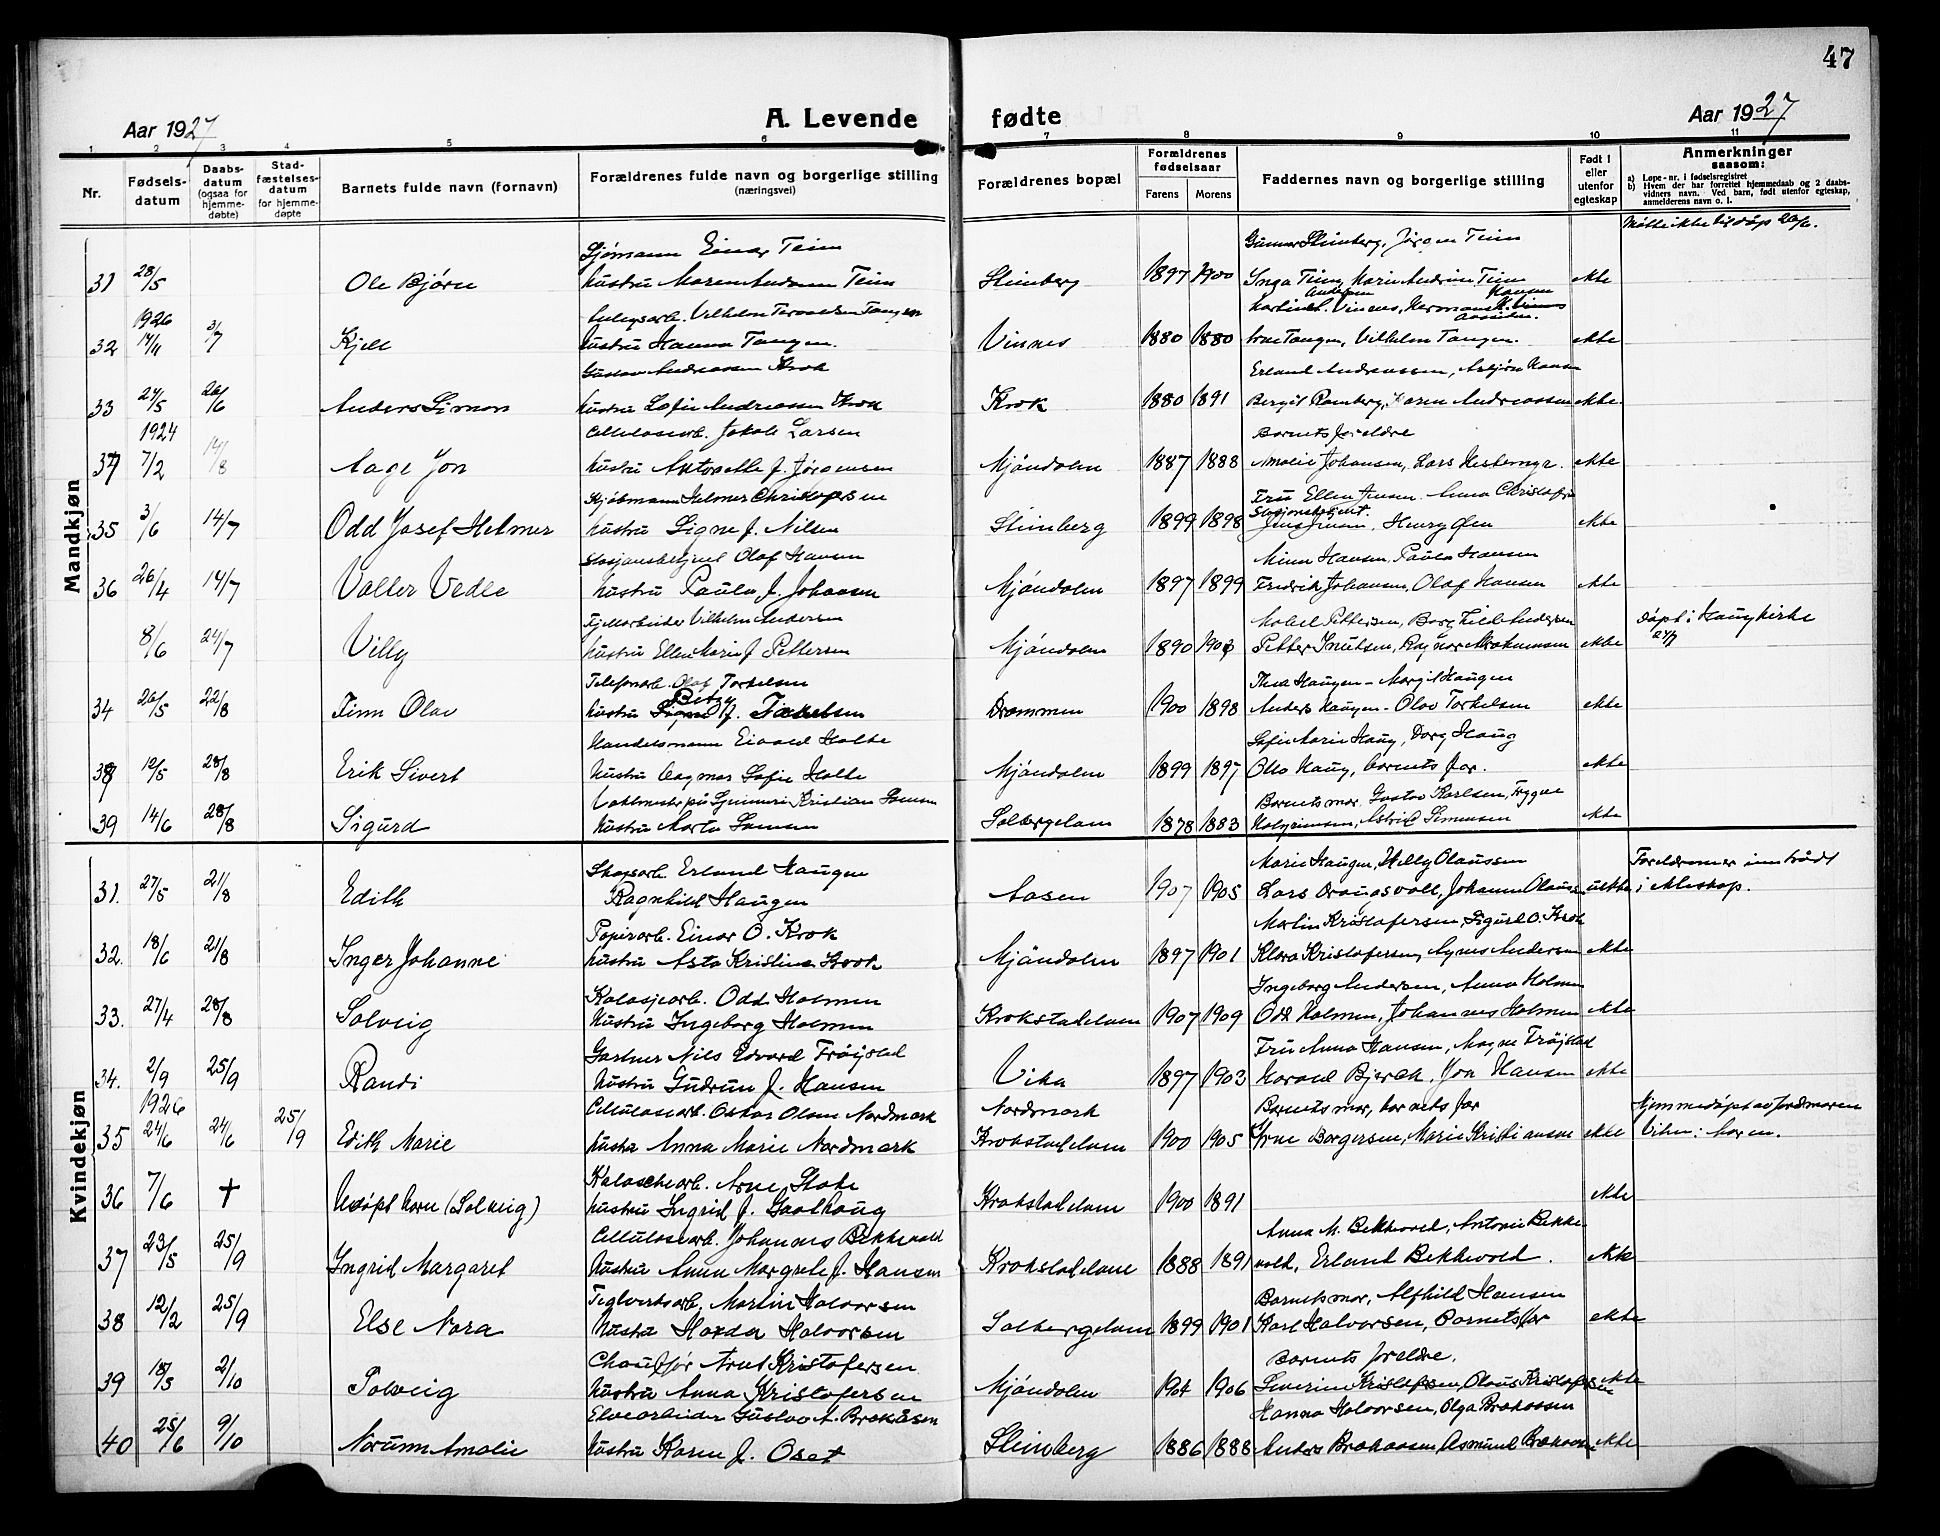 47
Aar 1927
A. Levende fødte
Aar 1927
1 2 3 4 5 6 7 8 9 10 11
Nr.
Fødsels-datum
Daabs-datum (ogsaa for hjemme-døbte)
Stad-fæstelses-datum for hjemme-døpte
Barnets fulde navn (fornavn)
Forældrenes fulde navn og borgerlige stilling (næringsvei)
Forældrenes bopæl
Forældrenes fødselsaar
Farens Morens
Faddernes navn og borgerlige stilling
Født i eller utenfor egteskap
Anmerkninger saasom:
a) Løpe-nr. i fødselsregistret
b) Hvem der har forrettet hjemmedaab og 2 daabs-vidners navn. Ved barn, født utenfor egteskap, anmelderens navn o. l.
Mandkjøn
Møtte ikke til døp 26/6.
Sjømann Einar Teim Gunnar Steinberg, Jørgen Teim
31 28/5 Ole Bjørn hustru Maren Teim Steinberg 1897 1900 Inga Teim, Marie Teim ekte
1926 Vilhelm Tangen
32 14/11 3/7 Kjell hustru Hanna Tangen. Vinnes 1880 1880 Tangen, Vilhelm Tangen. ekte
Gustav Andreassen Krok Erland Andreassen, Asbjørn Hansen
33 24/5 26/6 Anders Simon hustru Sofie Andreassen Krok Krok 1880 1891 Bergit Ramberg, Karen Andreassen ekte.
1924 Cellulosearb. Jakob Larsen Barnets foreldre
37 7/2 14/8 Aage Jon hustru Antonette f. Jørgensen Mjøndalen 1887 1888 Amalie Johansen, Lars ekte
Kjøbmann Helmer Christophersen Fru Ellen Jensen. Anna Christofersen
35 3/6 14/7 Odd Josef Helmer hustru Signe f. Nilsen Steinberg 1899 1898 Stasjonsbetjent. Jens Jensen, Henry Olsen ekte
Stasjonsbetjent Olaf Hansen Minn Hansen, Paula Hansen
36 26/4 14/7 Valter Vedle hustru Paula f. Johansen Mjøndalen 1897 1899 Fredrik Johansen, Olaf Hansen ekte
Vilhelm Andersen Mabel Pettersen, Borg Andersen døpt i Haug kirke
8/6 24/7 Villy hustru Ellen Marie f. Pettersen Mjøndalen 1890 Petter Knutsen, Ragnar ekte 24/7
Telefonarb. Olaf Torkelsen Thea Haugen - Margit Haugen
34 26/5 22/8 Finn Olav hustru Betzy f. Drammen 1900 1898 Anders Haugen - Olav Torkelsen ekte
Handelsmann Eivald Holte Sofie Marie Haug, Dorg Haug
38 12/5 28/8 Erik Sivert hustru Dagmar Sofie Holte Mjøndalen 1899 1897 Otto Haug, barnets far. ekte
Kristian Barnets mor, Gustav Karlsen, Trygve
39 14/6 28/8 Sigurd hustru Marta Solbergelven 1878 1883 Astrid Simensen ekte
Kvindekjøn
Skogsarb. Erland Haugen Marie Haugen, Helly Olaussen Foreldrene er inntrådt
31. 27/5 21/8 Edith Ragnhild Haugen Aasen 1907 1905 Lars Draugsvoll, Johanne Olaussen uekte i ekteskap.
Papirarb. Einar O. Krok Martin Kristofersen, Sigurd O. Krok
32. 18/6 21/8 Inger Johanne hustru Asta Kristine Krok Mjøndalen 1897 1901 Klara Kristofersen, Agnes Andersen ekte
Kalosjearb. Odd Holmen Ingeborg Andersen, Anna Holmen
33. 27/4 28/8 Solveig hustru Ingeborg Holmen Krokstadelven 1907 1909 Odd Holmen, Johannes Holmen ekte
Gartner Nils Edvard Trøijstad Fru Anna Hansen, Magne Trøjstad
34. 2/9 25/9 Randi hustru Gudrun f. Hansen Vika 1897 1903 Harald Bjerck, Jon Hansen ekte
1926 Cellulosearb. Oskar Olsen Nordmark Nordmark Barnets mor, barnets far Hjemmedøpt av jordmoren
35 24/6 24/6 25/9 Edith Marie hustru Anna Marie Nordmark Krokstadelven 1900 1905 Arne Borgersen, Marie Kristiansen ekte Vitn: Moren.
Kalosjearb. Arne
36 7/6 † Udøpt barn (Solveig) hustru Ingrid f. Gaalhaug Krokstadelven 1900 1891 ekte
Cellulosearb. Johannes Bekkevold Anna M. Bekkevold, Antonie Bekke
37 23/5 25/9 Ingrid Margaret hustru Anna Margrete f. Hansen Krokstadelven 1888 1891 vold, Erland Bekkevold. ekte
Teglverksarb. Martin Halvorsen Barnets mor, Alfhild Hansen
38 12/2 25/9 Else Nora hustru Halvorsen Solbergelven 1899 1901 Karl Halvorsen, Barnets far ekte
Chauffør Arne Kristofersen Barnets foreldre.
39 18/5 2/10 Solveig hustru Anna Kristofersen Mjøndalen 1904 1906 Severine Kristofersen, Olaus Kristofersen ekte
Elvearbeider Gustav A. Brekåsen Hanna Halvorsen, Olga Brekåsen
40 25/6 9/10 Norunn Amalie hustru Karen f. Oset Steinberg 1886 1888 Anders Brekåsen, Asmund Brekåsen ekte